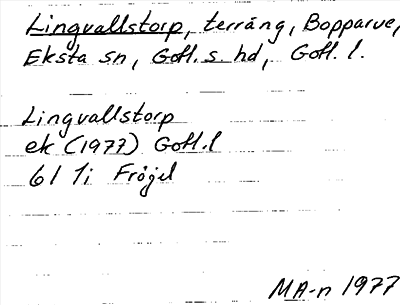 Lingvallstorp, terräng, Bopparve,
Eksta sn, Gotl. s. hd, Gotl. l.
Lingvallstorp
ek (1977) Gotl. l
6 I 1i Fröjel
MA-n 1977